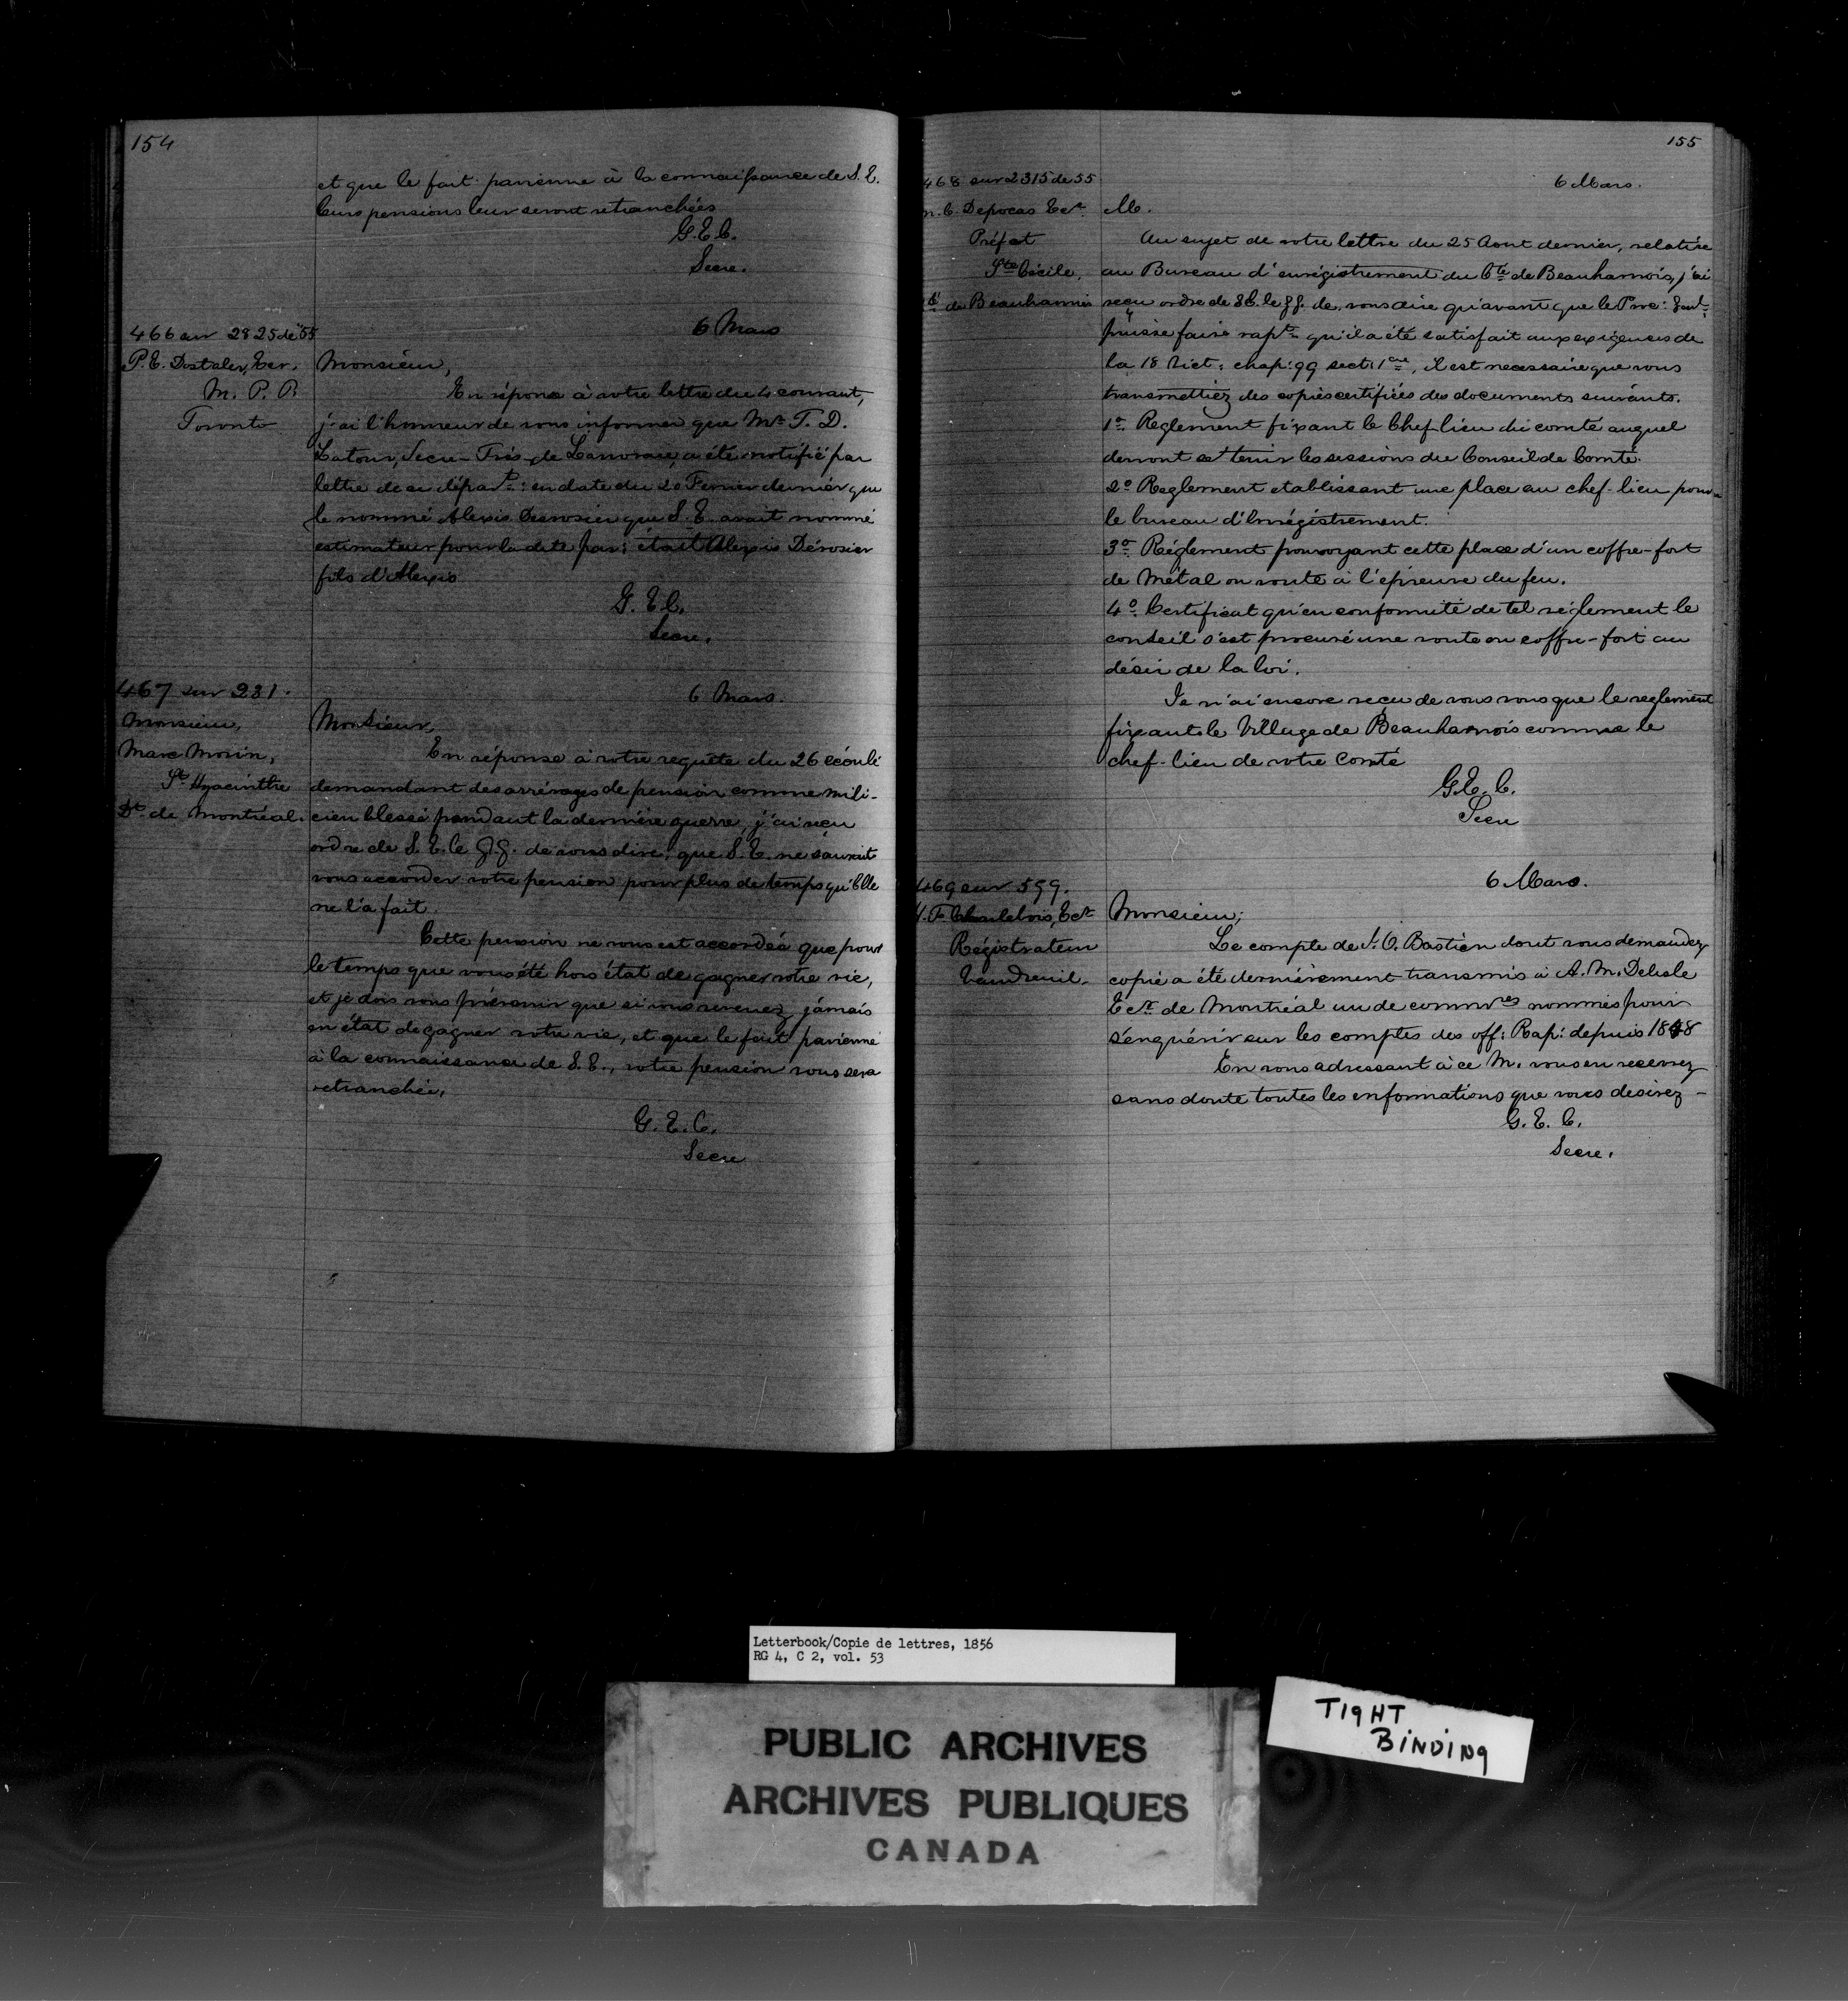 154
et que le fait parvienne à la connaissance de S. E.
leurs pensions leur seront retranchées
G. E. C.
Secre.
466 sur 2825 de 55
6 Mars
P. E. Dostaler, Ecr.
M. P. P.
Toronto
Monsieur,
En réponse à votre lettre du 4 courant,
j'ai l'honneur de vous informer que Mr. T. D.
Latour, Secre-Trés. de Lanoraie, a été notifié par
lettre de ce départ: en date du 20 Fevrier dernier que
le nommé Alexis Desrosier que S. E. avait nommé
estimateur pour la dite par: était Alexis Dérosier
fils d'Alexis
G. E. C.
Secre.
467 sur 231.
6 Mars.
Monsieur,
Marc Morin,
St Hyacinthe
Dt. de Montréal.
Monsieur,
En réponse à votre requête du 26 écoulé
demandant des arrérages de pension comme mili-
cien blessé pendant la dernière guerre, j'ai reçu
ordre de S. E. le G. G. de vous dire, que S. E. ne saurait
vous accorder votre pension pour plus de temps qu'Elle
ne l'a fait.
Cette pension ne vous est accordée que pour
le temps que vous été hors état de gagner votre vie,
et je dois vous prévenir que si vous revenez jamais
en état de gagner votre vie, et que le fait parvienne
à la connaissance de S. E., votre pension vous sera
retranchée.
G. E. C.
Secre
155
468 sur 2315 de 55
6 Mars.
M. C. Depocas Ecr.
Préfet
Ste Cécile,
Cté de Beauharnois
M.
Au sujet de votre lettre du 25 Aout dernier, relative
au Bureau d'enrégistrement du Cté de Beauharnois, j'ai
reçu ordre de S.E. le G.G. de vous dire qu'avant que le Proc: Genl.
puisse faire rapt. qu'il a été satisfait aux exigences de
la 18 Vict: chap: 99 sect: 1ere, il est necessaire que vous
transmettiez des copies certifiées des documents suivants.
1o. Reglement fixant le Chef lieu du comté auquel
devront se tenir les sessions du Conseil de Comté.
2o Reglement etablissant une place au chef-lieu pour
le bureau d'Enrégistrement.
3o. Réglement pourvoyant cette place d'un coffre-fort
de Métal ou voute à l'épreuve du feu.
4o. Certificat qu'en conformité de tel réglement le
conseil s'est procuré une voute ou coffre-fort au
désir de la loi.
Je n'ai encore reçu de vous vous que le reglement
fixant le Village de Beauharnois comme le
chef-lieu de votre Comté
G. E. C.
Secre
469 sur 599.
6 Mars.
F. Charlebois, Ecr
Régistrateur
Vaudreuil.
Monsieur;
Le compte de J. O. Bastien dont vous demandez
copie a été dernièrement transmis à A. M. Delisle
Ecr. de Montréal un de commres nommés pour
s'enquérir sur les comptes des off: Rap: depuis 1848
En vous adressant à ce M. vous en recevrez
sans doute toutes les informations que vous desirez -
G. E. C.
Secre.
Letterbook/Copie de lettres, 1856
RG 4, C 2, vol. 53
PUBLIC ARCHIVES
ARCHIVES PUBLIQUES
CANADA
TIGHT
BINDING